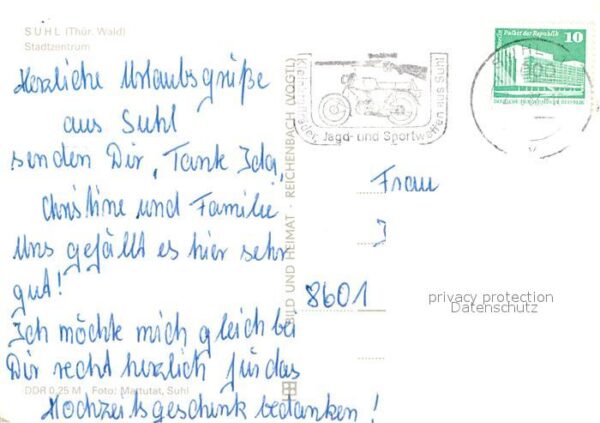 SUHL (Thür. Wald)
Stadtzentrum
Herzliche Urlaubsgrüße
aus Suhl
senden Dir, Tante Ida,
Christine und Familie
Uns gefällt es hier sehr
gut!
Ich möchte mich gleich bei
Dir recht herzlich für das
Hochzeitsgeschenk bedanken!
DDR 0,25 M Foto: Mattutat, Suhl
BILD UND HEIMAT · REICHENBACH (VOGTL)
Jagd- und Sportwaffen aus Suhl
Berlin Palast der Republik
10
Frau
J
8601
privacy protection
Datenschutz